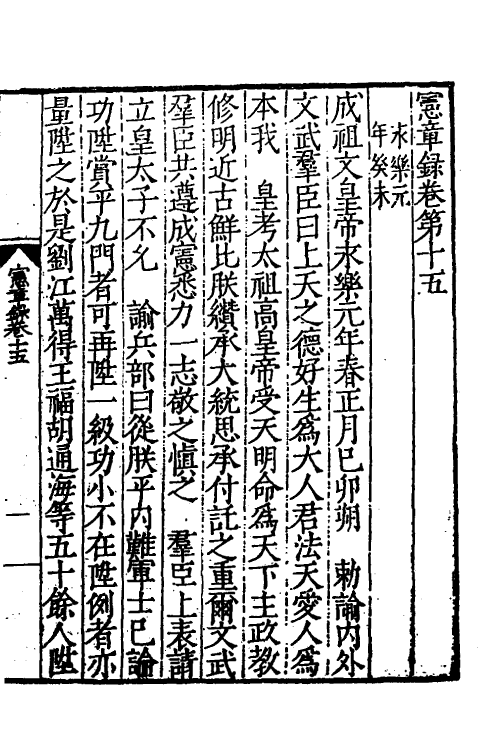 憲章錄卷第十五
永樂元
年癸未
成祖文皇帝永樂元年春正月己卯朔　勅諭內外
文武羣臣曰上天之德好生爲大人君法天愛人爲
本我　皇考太祖高皇帝受天明命爲天下主政教
修明近古鮮比朕纘承大統思承付託之重爾文武
羣臣共遵成憲悉力一志敬之慎之　羣臣上表請
立皇太子不允　諭兵部曰從朕平內難軍士已論
功陞賞平九門者可再陞一級功小不在陞例者亦
量陞之於是劉江萬得王福胡通海等五十餘人陞
憲章錄卷十五
一